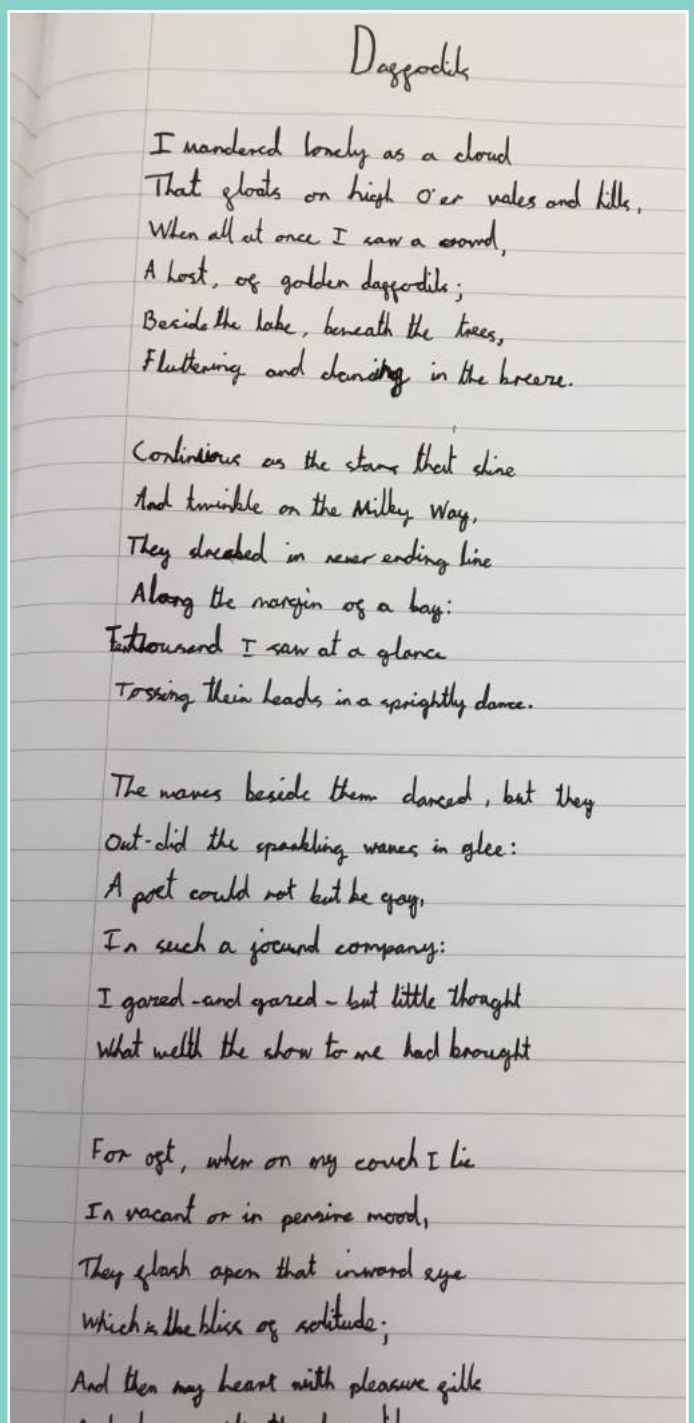 Daffodils
I wandered lonely as a cloud
That floats on high O'er vales and hills,
When all at once I saw a crowd,
A host, of golden daffodils;
Beside the lake, beneath the trees,
Fluttering and dancing in the breeze.
Continuous as the stars that shine
And twinkle on the Milky Way,
They streched in never ending line
Along the margin of a bay:
Ten thousand I saw at a glance
Tossing their heads in a sprightly dance.
The waves beside them danced, but they
Out-did the sparkling waves in glee:
A poet could not but be gay,
In such a jocund company:
I gazed -and gazed - but little thought
What welth the show to me had brought
For oft, when on my couch I lie
In vacant or in pensive mood,
They flash apon that inward eye
Which is the bliss of solitude;
And then my heart with pleasure fills